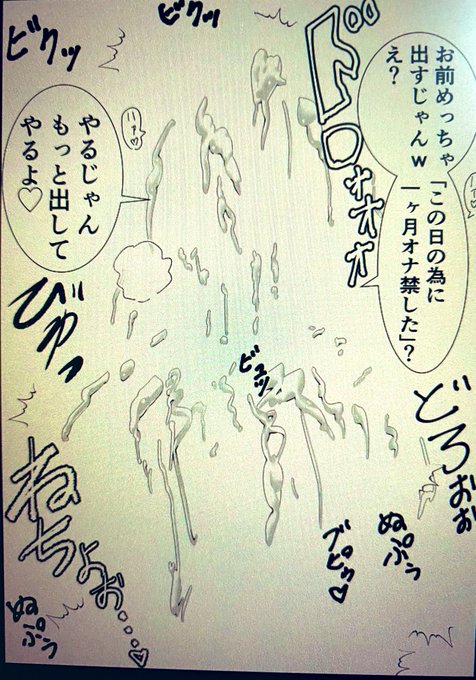 お前めっちゃ
出すじゃんw
え?
「この日の為に
一ヶ月オナ禁した」?
ビクッ
ビクッ
やるじゃん
もっと出して
やるよ♡
びゅっ
ビュッ
どろぉぉ
ねちょぉ…♡
ズピッ♡
ぬぷっ
ぬぷっ